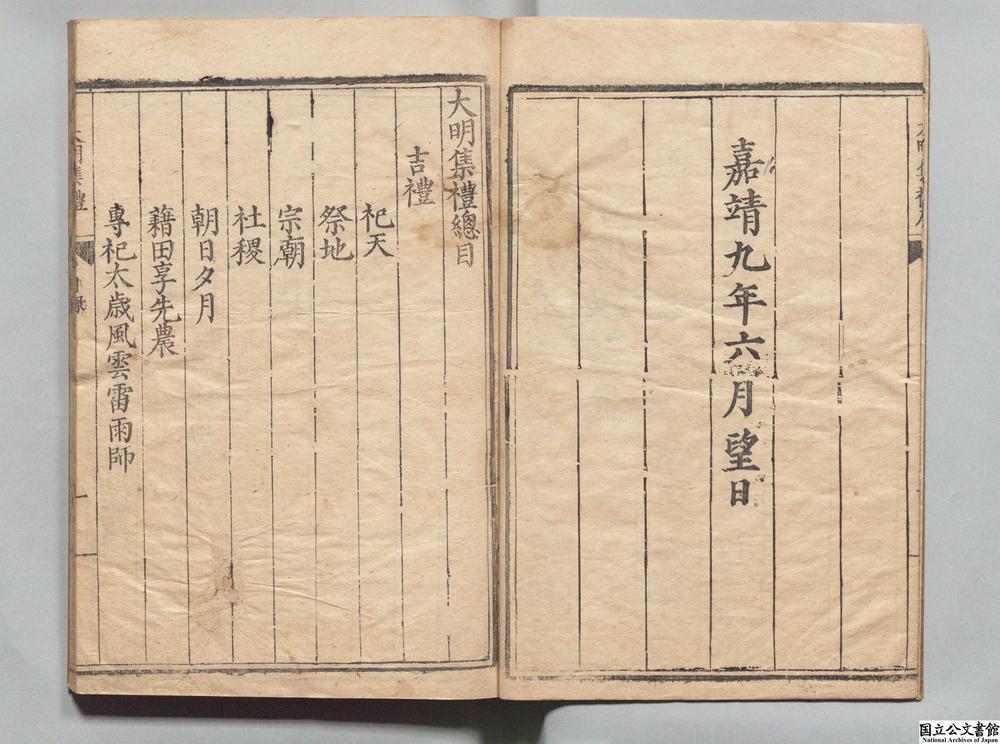 嘉靖九年六月望日
大明集禮總目
吉禮
祀天
祭地
宗朝
社稷
朝日夕月
藉田享先農
專祀太歲風雲雷雨師
大明集禮
国立公文書館
National Archives of Japan